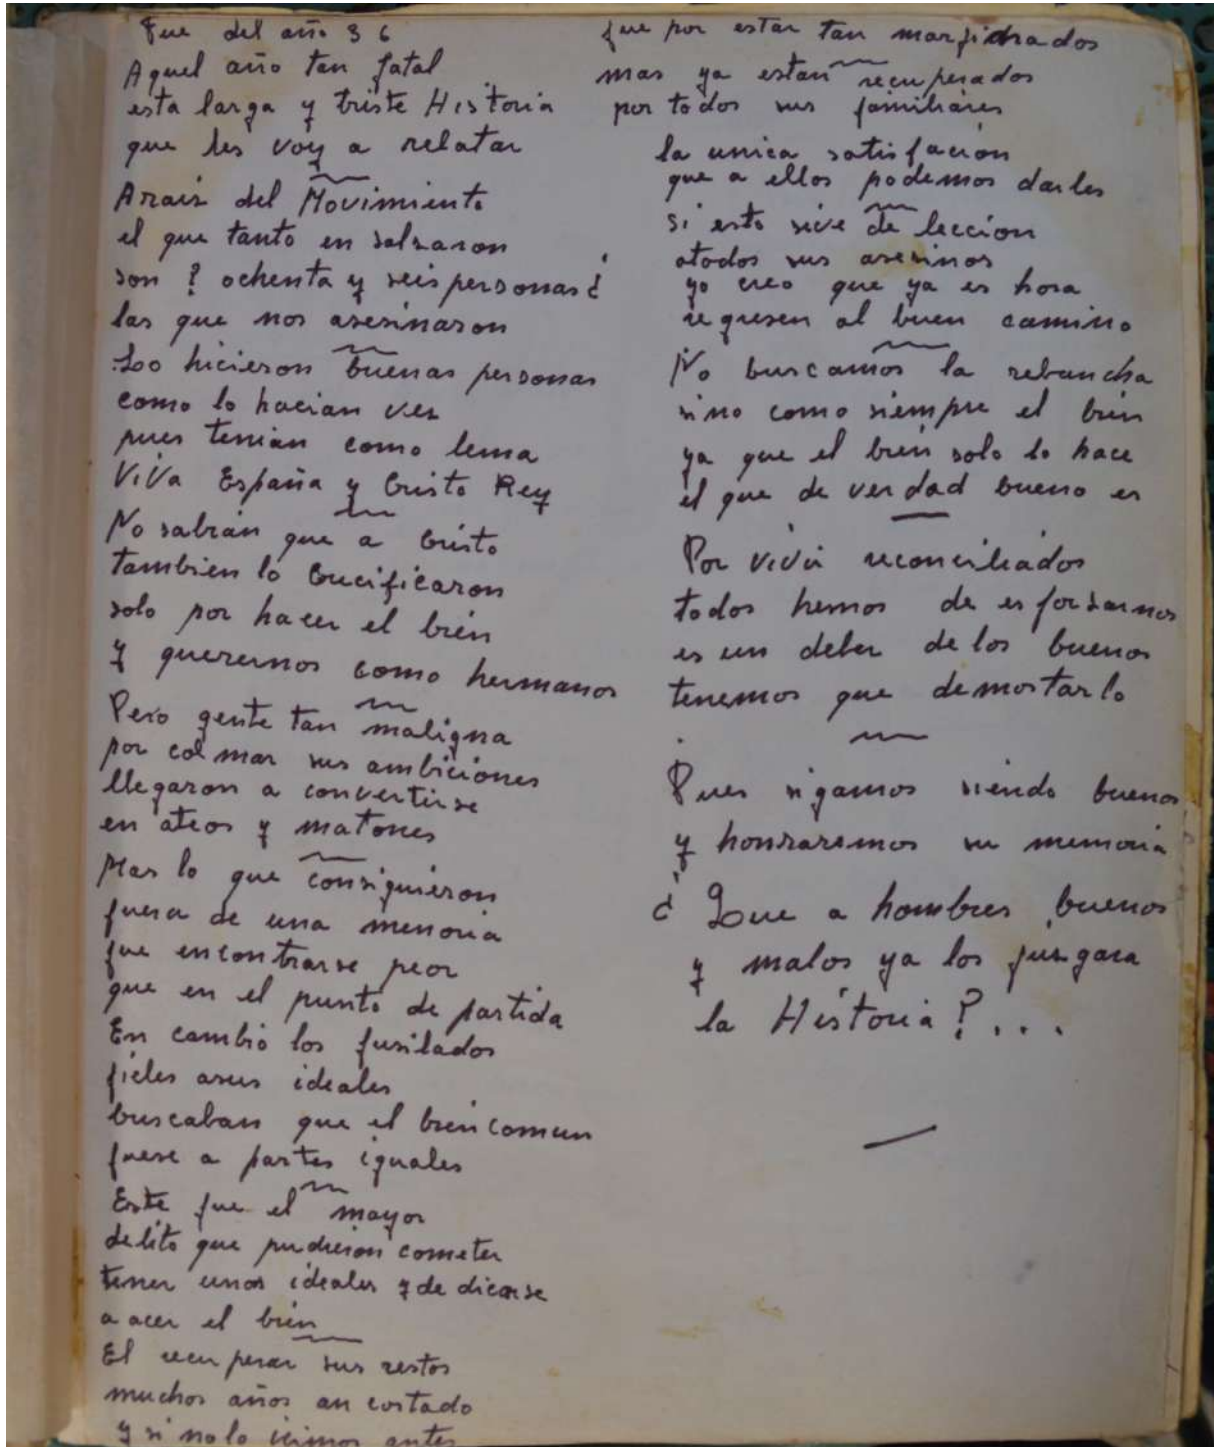 Fue del año 36
Aquel año tan fatal
esta larga y triste Historia
que les voy a relatar
Araiz del Movimiento
el que tanto en salsaron
son ? ochenta y seis personas ¿
las que nos asesinaron
Lo hicieron buenas personas
como lo hacian ver
pues tenian como lema
ViVa España y Cristo Rey
No sabran que a Cristo
tambien lo Crucificaron
solo por hacer el bien
y querernos como hermanos
Pero gente tan maligna
por colmar sus ambiciones
llegaron a convertirse
en ateos y matones
Mas lo que consiguieron
fuera de una menoria
fue encontrarse peor
que en el punto de partida
En cambio los fusilados
fieles asus ideales
buscaban que el bien comun
fuese a partes iguales
Este fue el mayor
delito que pudieron cometer
tener unos ideales y de dicarse
a acer el bien
El recuperar sus restos
muchos años an costado
y si nolo icimos antes
fue por estar tan marjidrados
mas ya estan recuperados
por todos sus familiares
la unica satisfacion
que a ellos podemos darles
si esto sive de leccion
atodos sus asesinos
yo creo que ya es hora
regresen al buen camino
No buscamos la rebancha
sino como siempre el bien
ya que el bien solo lo hace
el que de verdad bueno es
Por vivir reconciliados
todos hemos de esforsarnos
es un deber de los buenos
tenemos que demostarlo
Pues sigamos siendo buenos
y honraremos su memoria
¿ Que a hombres buenos
y malos ya los juzgara
la Historia ? ...